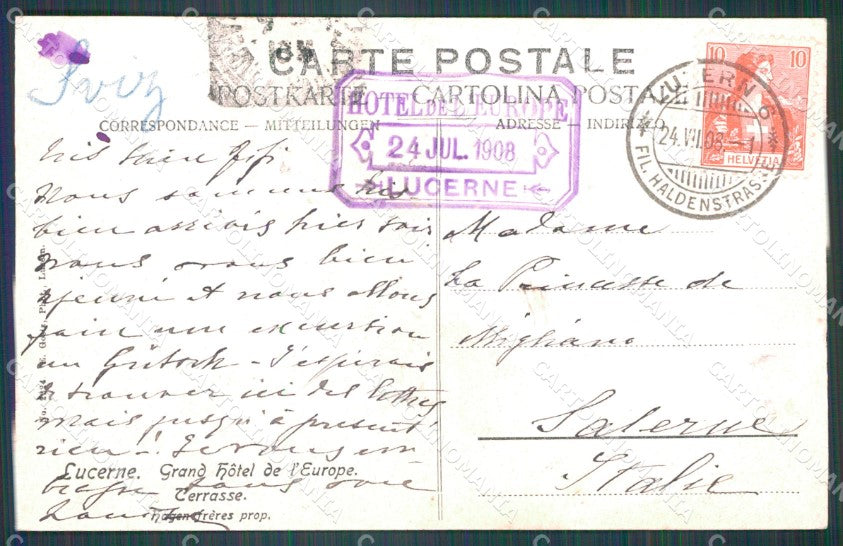 CARTE POSTALE
POSTKARTE CARTOLINA POSTALE
CORRESPONDANCE — MITTEILUNGEN
ADRESSE — INDIRIZZO
Sviz
HOTEL DE L'EUROPE
24 JUL. 1908
LUCERNE
10 10
HELVETIA
LUZERN 6
24.VII.08.
FIL. HALDENSTRASSE
Nous sommes
bien arrivés hier soir
nous avons bien
et nous allons
faire une excursion
au J'espérais
trouver ici des lettres
mais jusqu'à présent
rien! Je vous em
Madame
La Princesse de
Migliano
Salerne
Italie
Lucerne. Grand Hôtel de l'Europe.
Terrasse.
Hagen frères prop.
CARTOLINOMANIA